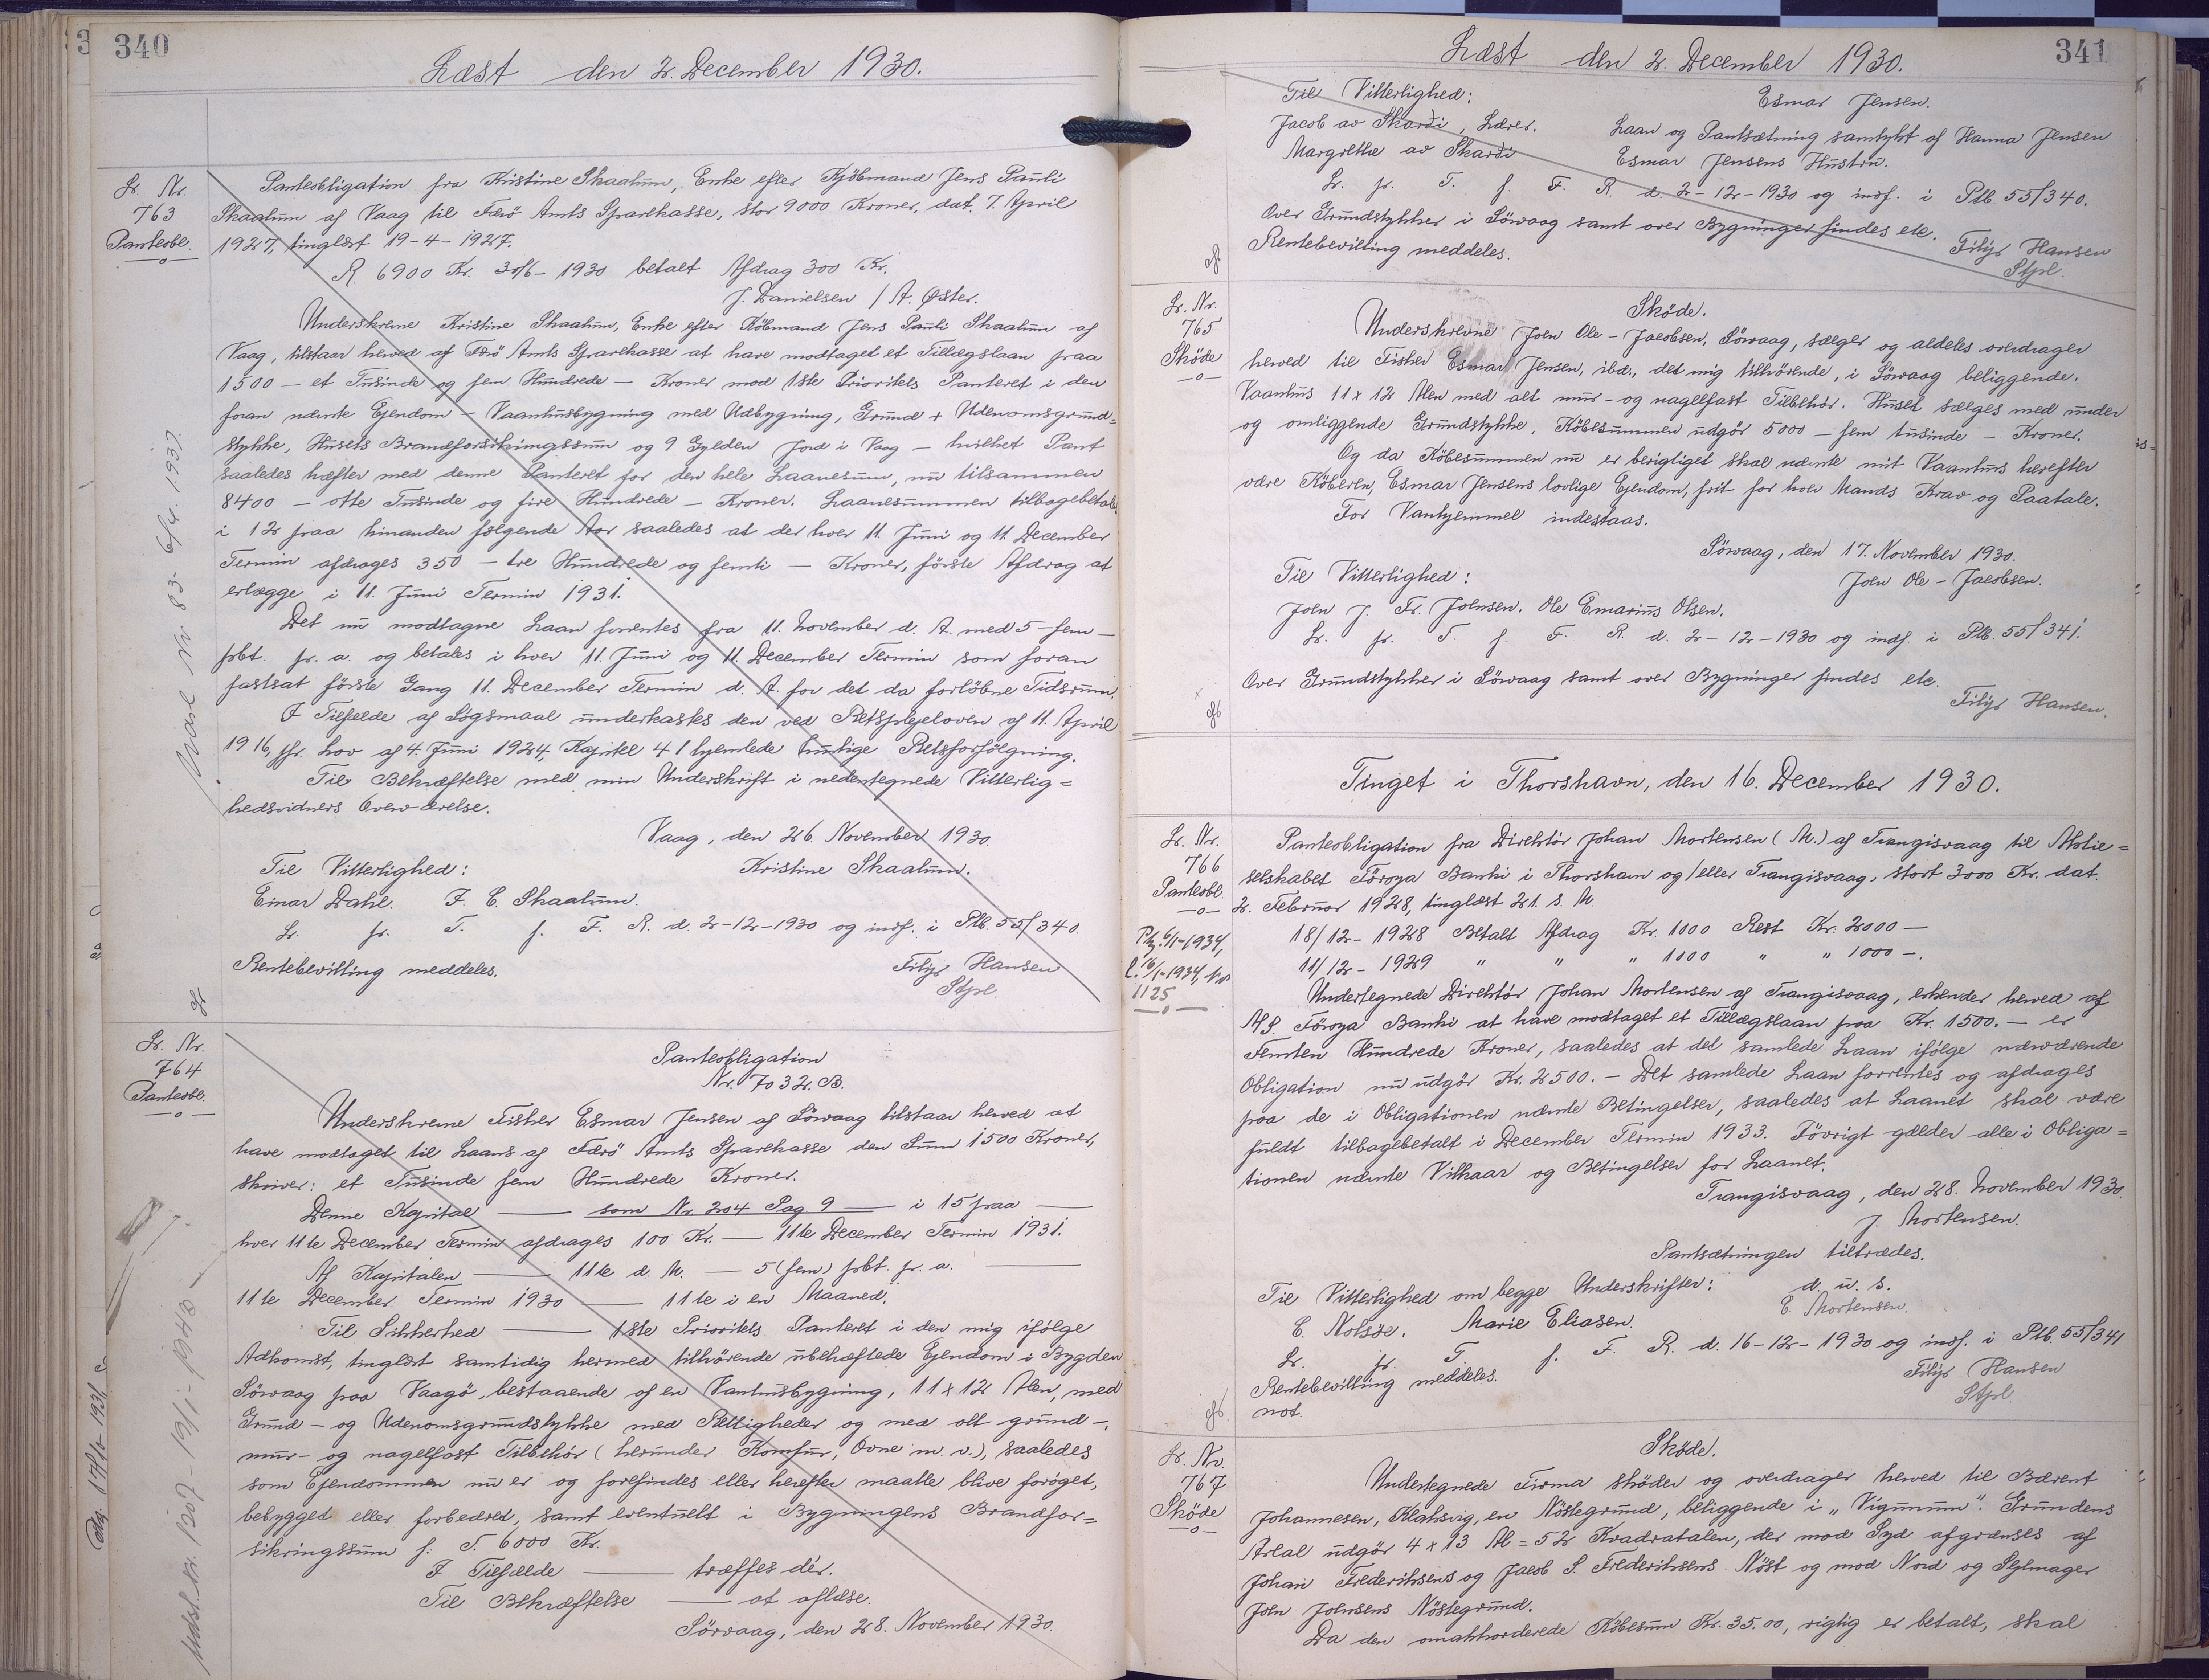 340
Læst den 2. December 1930.
Lr. Nr.
763
Panteobl.
Panteobligation fra Kristine Skaalum, Enke efter Kjöbmand Jens Pauli
Skaalum af Vaag til Færö Amts Sparekasse, stor 9000 Kroner, dat. 7. April
1927, tinglæst 19-4-1927.
R. 6900 Kr. 30/6-1930 betalt Afdrag 300 Kr.
J. Danielsen / A. Øster.
Underskrevne Kristine Skaalum, Enke efter Köbmand Jens Pauli Skaalum af
Vaag, tilstaar herved af Færö Amts Sparekasse at have modtaget et Tillægslaan paa
1500 — et Tusinde og fem Hundrede — Kroner mod 1ste Prioritets Panteret i den
foran nævnte Ejendom — Vaanhusbygning med Udbygning, Grund + Udenomsgrund=
stykke, Husets Brandforsikringssum og 9 Gylden Jord i Vaag — hvilket Pant
saaledes hæfter med denne Panteret for den hele Laanesum, nu tilsammen
8400 — otte Tusinde og fire Hundrede — Kroner. Laanesummen tilbagebetales
i 12 paa hinanden følgende Aar saaledes at der hver 11. Juni og 11. December
Termin afdrages 350 — tre Hundrede og femti — Kroner, förste Afdrag at
erlægge i 11. Juni Termin 1931.
Det nu modtagne Laan forrentes fra 11. November d. A. med 5 - fem —
pbt. pr. a. og betales i hver 11. Juni og 11. December Termin som foran
fastsat förste Gang 11. December Termin d. A. for det da forlöbne Tidsrum.
I Tilfælde af Sögsmaal underkastes den ved Retsplejeloven af 11. April
1916, jfr. Lov af 4. Juni 1924, Kapitel 41 hjemlede hurtige Retsforfölgning.
Til Bekræftelse med min Underskrift i nedentegnede Vitterlig=
hedsvidners Overværelse.
Vaag, den 26. November 1930.
Til Vitterlighed: Kristine Skaalum.
Einar Dahl. J. C. Skaalum.
Lr. pr. T. f. F. R. d. 2-12-1930 og indf. i Ptb. 55/340.
Rentebevilling meddeles. Filip Hansen
Stpl.
Lr. Nr.
764
Panteobl.
Panteobligation
Nr. 7032. B.
Underskrevne Fisker Esmar Jensen af Sörvaag tilstaar herved at
have modtaget til Laans af Færö Amts Sparekasse den Sum 1500 Kroner,
skriver: et Tusinde fem Hundrede Kroner.
Denne Kapital —— som Nr. 204 Pag 9 —— i 15 paa ——
hver 11te December Termin afdrages 100 Kr. — 11te December Termin 1931.
Af Kapitalen —— 11te d. M. — 5 (fem) pbt. pr. a. ——
11te December Termin 1930 —— 11te i en Maaned.
Til Sikkerhed —— 1ste Prioritets Panteret i den mig ifölge
Adkomst, tinglæst samtidig hermed tilhörende ubehæftede Ejendom i Bygden
Sörvaag paa Vaagö, bestaaende af en Vaanhusbygning, 11 x 12 Alen, med
Grund - og Udenomsgrundstykke med Rettigheder og med alt grund -,
mur- og nagelfast Tilbehör (herunder Komfur, Ovne m. v.), saaledes
som Ejendommen nu er og forefindes eller herefter maatte blive foröget,
bebygget eller forbedret, samt eventuelt i Bygningens Brandfor=
sikringssum f. T. 6000 Kr.
I Tilfælde —— træffes dér.
Til Bekræftelse —— at aflæse.
Sörvaag, den 28. November 1930.
341
Læst den 2. December 1930.
Til Vitterlighed: Esmar Jensen.
Jacob av Skarði, Lærer. Laan og Pantsætning samtykt af Hanna Jensen
Margrethe av Skarði Esmar Jensens Hustru.
Lr. pr. T. f. F. R. d. 2-12-1930 og indf. i Ptb. 55/340.
Over Grundstykker i Sörvaag samt over Bygninger findes etc.
Rentebevilling meddeles. Filip Hansen
Stpl.
Lr. Nr.
765
Sköde
Sköde.
Underskrevne Joen Ole-Jacobsen, Sörvaag, sælger og aldeles overdrager
herved til Fisker Esmar Jensen, ibd., det mig tilhörende, i Sörvaag beliggende.
Vaanhus 11 x 12 Alen med alt mur- og nagelfast Tilbehör. Huset sælges med under
og omliggende Grundstykke. Köbesummen udgör 5000 — fem tusinde — Kroner.
Og da Köbesummen nu er berigtiget skal nævnte mit Vaanhus herefter
være Köberen, Esmar Jensens lovlige Ejendom, frit for hver Mands Krav og Paatale.
For Vanhjemmel indestaas.
Sörvaag, den 17. November 1930.
Til Vitterlighed: Joen Ole-Jacobsen.
Joen J. Fr. Joensen. Ole Emarius Olsen.
Lr. pr. T. f. F. R. d. 2-12-1930 og indf. i Ptb. 55/341.
Over Grundstykker i Sörvaag samt over Bygninger findes etc.
Filip Hansen.
Tinget i Thorshavn, den 16. December 1930.
Lr. Nr.
766
Panteobl.
1125
Panteobligation fra Direktör Johan Mortensen (M.) af Trangisvaag til Aktie=
selskabet Föroya Banki i Thorshavn og/eller Trangisvaag, stort 3000 Kr. dat.
2. Februar 1928, tinglæst 21. s. M.
18/12-1928 Betalt Afdrag Kr. 1000 Rest Kr. 2000 —
11/12-1929 " " " 1000 " " 1000 —.
Undertegnede Direktör Johan Mortensen af Trangisvaag, erkender herved af
A/S. Föroya Banki at have modtaget et Tillægslaan paa Kr. 1500. — er
Femten Hundrede Kroner, saaledes at det samlede Laan ifölge nærværende
Obligation nu udgör Kr. 2500. — Det samlede Laan forrentes og afdrages
paa de i Obligationen nævnte Betingelser, saaledes at Laanet skal være
fuldt tilbagebetalt i December Termin 1933. Iövrigt gælder alle i Obliga=
tionen nævnte Vilkaar og Betingelser for Laanet.
Trangisvaag, den 28. November 1930.
J. Mortensen.
Pantsætningen tiltrædes.
Til Vitterlighed om begge Underskrifter: d. u. s.
C. Nolsöe. Marie Eliasen. E Mortensen.
Lr. pr. T. f. F. R. d. 16-12-1930 og indf. i Ptb. 55/341
Rentebevilling meddeles. Filip Hansen
not. Stpl.
Lr. Nr.
767
Sköde
Sköde.
Undertegnede Firma sköder og overdrager herved til Bærent
Johannesen, Klaksvig, en Nöstegrund, beliggende i „Vigunum". Grundens
Areal udgör 4 x 13 Al = 52 Kvadratalen, der mod Syd afgrænses af
Johan Frederiksens og Jacob S. Frederiksens Nöst og mod Nord og Sejlmager
Joen Joensens Nöstegrund.
Da den omakkorderede Köbesum Kr. 35.00, rigtig er betalt, skal